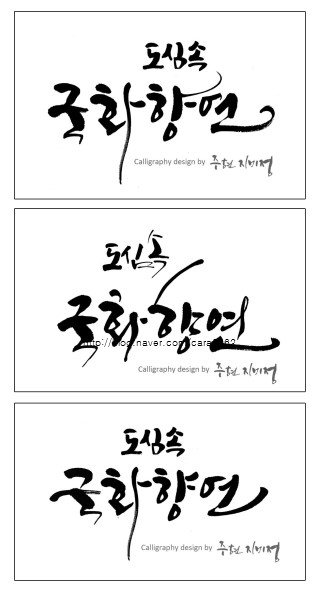 도심속
국화향연
Calligraphy design by
도심속
국화향연
http://blog.naver.com/cara
Calligraphy design by
도심속
국화향연
Calligraphy design by